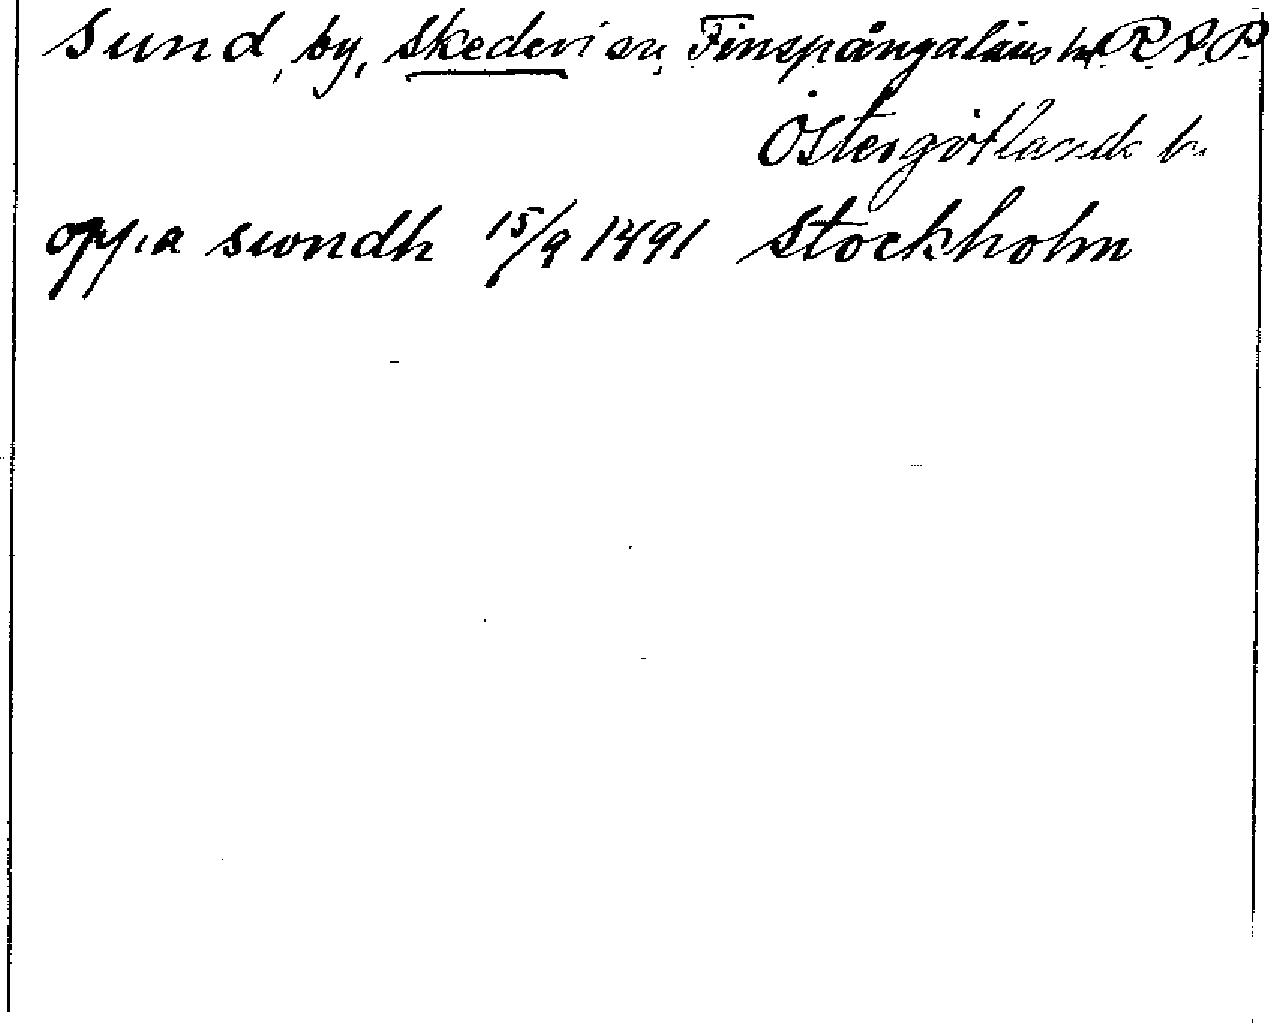 Sund, by, Skedevi sn, Finspångaläns hd RAP
Östergötlands l.
oppa swndh 15/9 1491 Stockholm